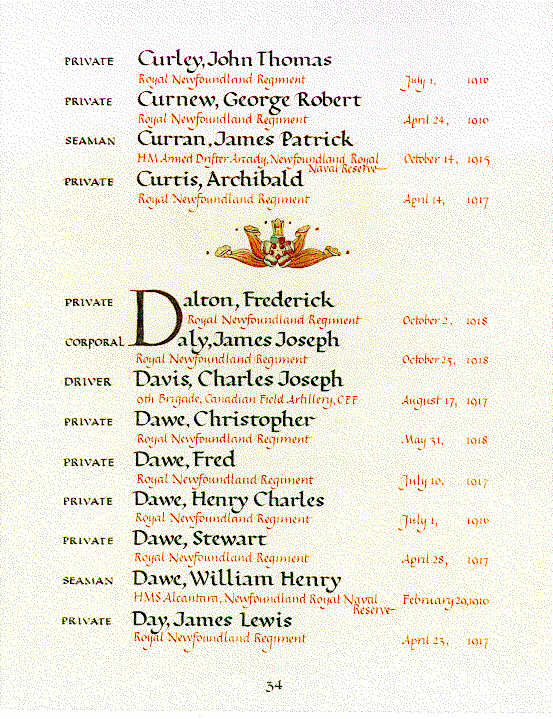 PRIVATE Curley, John Thomas
Royal Newfoundland Regiment July 1, 1916
PRIVATE Curnew, George Robert
Royal Newfoundland Regiment April 24, 1916
SEAMAN Curran, James Patrick
HM Armed Drifter Arcady, Newfoundland Royal October 14, 1915
Naval Reserve
PRIVATE Curtis, Archibald
Royal Newfoundland Regiment April 14, 1917
PRIVATE Dalton, Frederick
Royal Newfoundland Regiment October 2, 1918
CORPORAL Daly, James Joseph
Royal Newfoundland Regiment October 25, 1918
DRIVER Davis, Charles Joseph
9th Brigade, Canadian Field Artillery, CEF August 17, 1917
PRIVATE Dawe, Christopher
Royal Newfoundland Regiment May 31, 1918
PRIVATE Dawe, Fred
Royal Newfoundland Regiment July 10, 1917
PRIVATE Dawe, Henry Charles
Royal Newfoundland Regiment July 1, 1916
PRIVATE Dawe, Stewart
Royal Newfoundland Regiment April 28, 1917
SEAMAN Dawe, William Henry
HMS Alcantara, Newfoundland Royal Naval February 29, 1916
Reserve
PRIVATE Day, James Lewis
Royal Newfoundland Regiment April 23, 1917
34